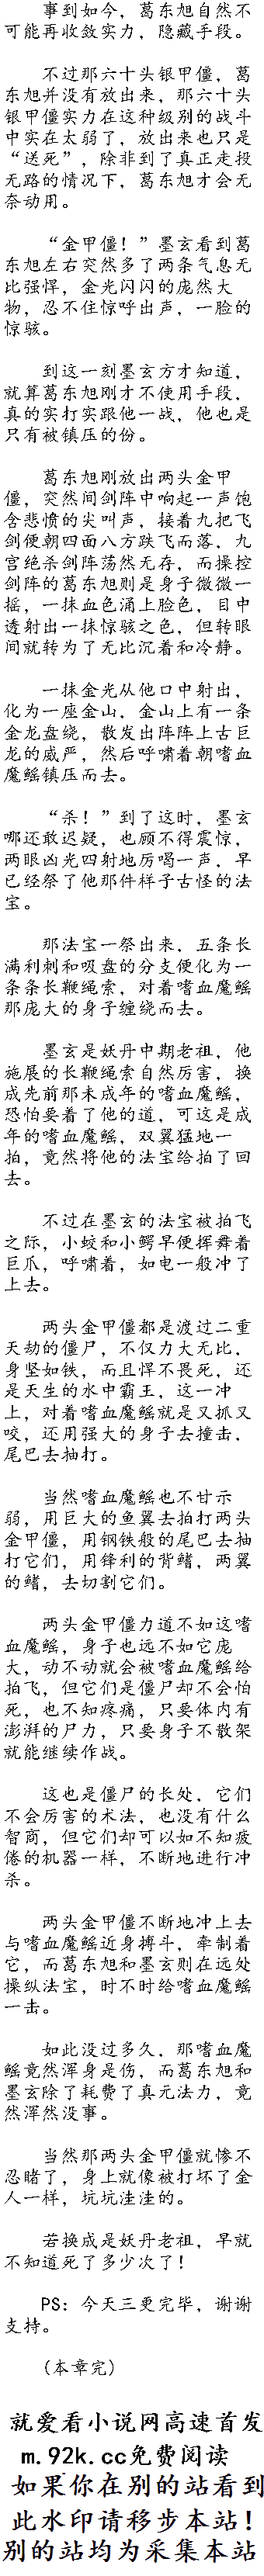 事到如今，葛东旭自然不
可能再收敛实力，隐藏手段。
不过那六十头银甲僵，葛
东旭并没有放出来，那六十头
银甲僵实力在这种级别的战斗
中实在太弱了，放出来也只是
“送死”，除非到了真正走投
无路的情况下，葛东旭才会无
奈动用。
“金甲僵！”墨玄看到葛
东旭左右突然多了两条气息无
比强悍，金光闪闪的庞然大
物，忍不住惊呼出声，一脸的
惊骇。
到这一刻墨玄方才知道，
就算葛东旭刚才不使用手段，
真的实打实跟他一战，他也是
只有被镇压的份。
葛东旭刚放出两头金甲
僵，突然间剑阵中响起一声饱
含悲愤的尖叫声，接着九把飞
剑便朝四面八方跌飞而落，九
宫绝杀剑阵荡然无存，而操控
剑阵的葛东旭则是身子微微一
摇，一抹血色涌上脸色，目中
透射出一抹惊骇之色，但转眼
间就转为了无比沉着和冷静。
一抹金光从他口中射出，
化为一座金山，金山上有一条
金龙盘绕，散发出阵阵上古巨
龙的威严，然后呼啸着朝嗜血
魔鳐镇压而去。
“杀！”到了这时，墨玄
哪还敢迟疑，也顾不得震惊，
两眼凶光四射地厉喝一声，早
已经祭了他那件样子古怪的法
宝。
那法宝一祭出来，五条长
满利刺和吸盘的分支便化为一
条条长鞭绳索，对着嗜血魔鳐
那庞大的身子缠绕而去。
墨玄是妖丹中期老祖，他
施展的长鞭绳索自然厉害，换
成先前那未成年的嗜血魔鳐，
恐怕要着了他的道，可这是成
年的嗜血魔鳐，双翼猛地一
拍，竟然将他的法宝给拍了回
去。
不过在墨玄的法宝被拍飞
之际，小蛟和小鳄早便挥舞着
巨爪，呼啸着，如电一般冲了
上去。
两头金甲僵都是渡过二重
天劫的僵尸，不仅力大无比，
身坚如铁，而且悍不畏死，还
是天生的水中霸王，这一冲
上，对着嗜血魔鳐就是又抓又
咬，还用强大的身子去撞击，
尾巴去抽打。
当然嗜血魔鳐也不甘示
弱，用巨大的鱼翼去拍打两头
金甲僵，用钢铁般的尾巴去抽
打它们，用锋利的背鳍，两翼
的鳍，去切割它们。
两头金甲僵力道不如这嗜
血魔鳐，身子也远不如它庞
大，动不动就会被嗜血魔鳐给
拍飞，但它们是僵尸却不会怕
死，也不知疼痛，只要体内有
澎湃的尸力，只要身子不散架
就能继续作战。
这也是僵尸的长处，它们
不会厉害的术法，也没有什么
智商，但它们却可以如不知疲
倦的机器一样，不断地进行冲
杀。
两头金甲僵不断地冲上去
与嗜血魔鳐近身搏斗，牵制着
它，而葛东旭和墨玄则在远处
操纵法宝，时不时给嗜血魔鳐
一击。
如此没过多久，那嗜血魔
鳐竟然浑身是伤，而葛东旭和
墨玄除了耗费了真元法力，竟
然浑然没事。
当然那两头金甲僵就惨不
忍睹了，身上就像被打坏了金
人一样，坑坑洼洼的。
若换成是妖丹老祖，早就
不知道死了多少次了！
PS：今天三更完毕，谢谢
支持。
（本章完）
就爱看小说网高速首发
m.92k.cc免费阅读
如果你在别的站看到
此水印请移步本站！
别的站均为采集本站